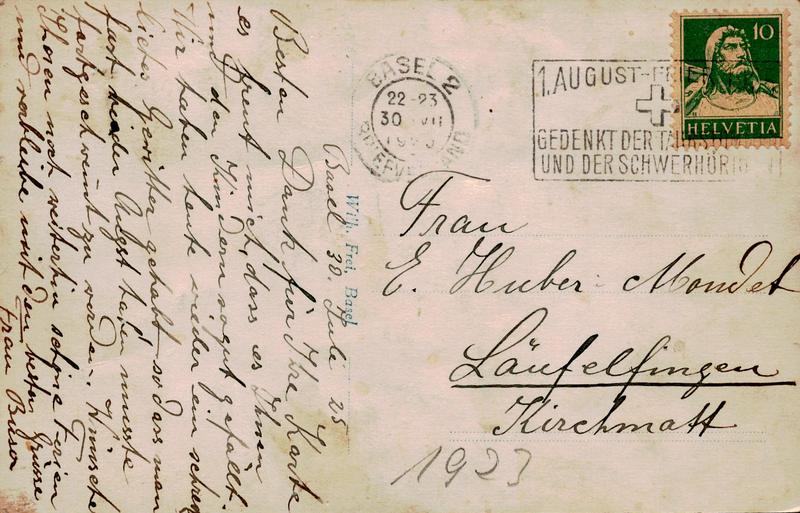 Basel 30. Juli 25
Besten Dank für Ihre Karte
es freut mich, dass es Ihnen
und den Kindern so gut gefällt.
Wir haben heute wieder ein schreck
liches Gewitter gehabt so dass man
fast wieder Angst haben musste
fortgeschwemmt zu werden. Wünsche
Ihnen noch weiterhin schöne Ferien
und verbleibe mit den besten Grüsse
Frau Buser
Wilh. Frei, Basel
BASEL 2
22-23
30 VII
BRIEFVERSAND
1. AUGUST-FEIER
GEDENKT DER TAUBSTUMMEN
UND DER SCHWERHÖRIGEN
10
HELVETIA
Frau
E. Huber-Mondet
Läufelfingen
Kirchmatt
1923